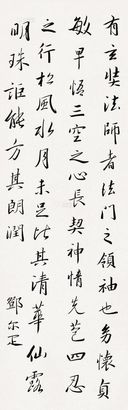 有玄奘法師者法門之領袖也幼懷貞
敏早悟三空之心長契神情先苞四忍
之行松風水月未足比其清華仙露
明珠詎能方其朗潤 鄧尔疋